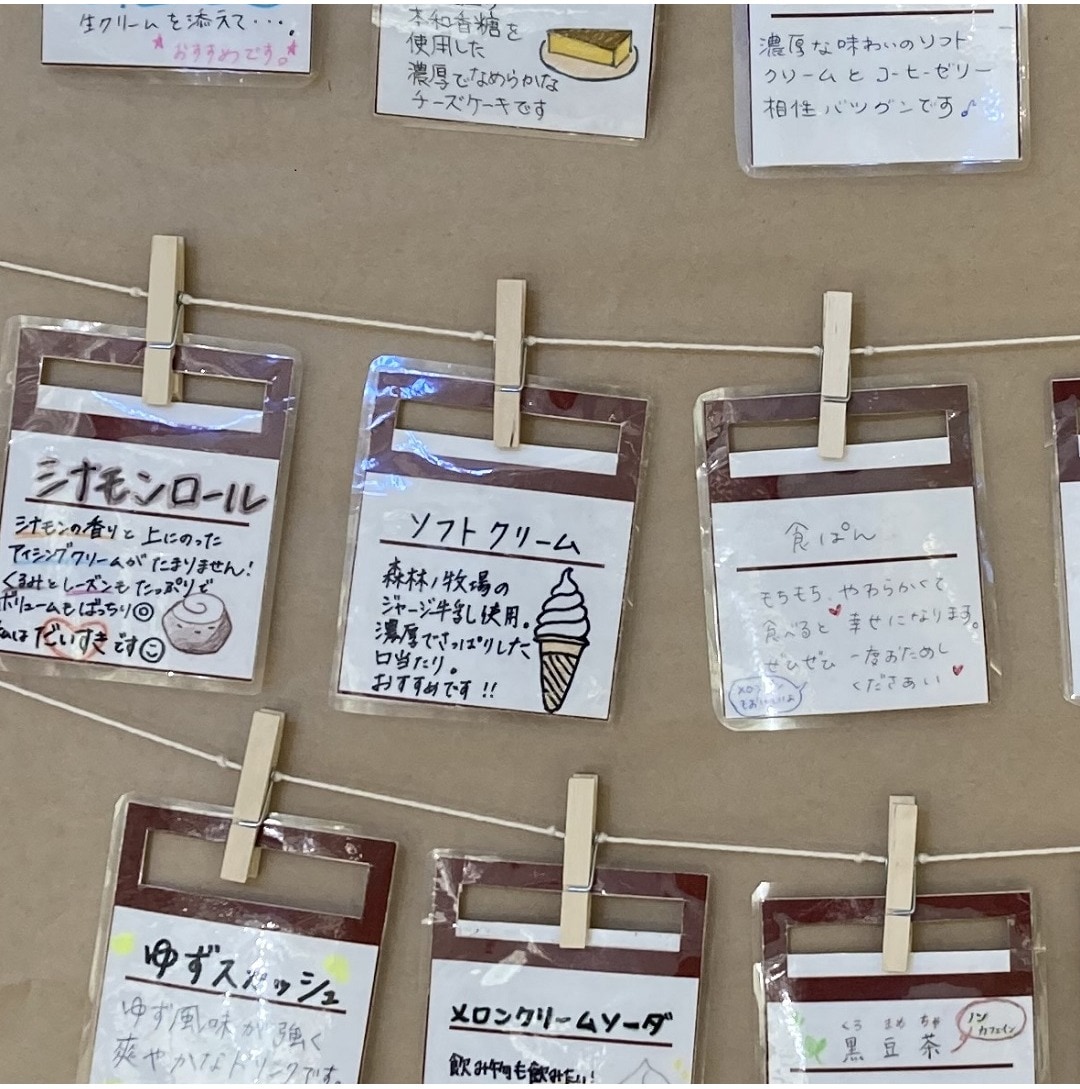 生クリームを添えて・・・。
おすすめです。
本和香糖を
使用した
濃厚でなめらかな
チーズケーキです
濃厚な味わいのソフト
クリームとコーヒーゼリー
相性バツグンです♪
シナモンロール
シナモンの香りと上にのった
アイシングクリームがたまりません!
くるみとレーズンもたっぷりで
ボリュームもばっちり◎
私はだいすきです
ソフトクリーム
森林ノ牧場の
ジャージ牛乳使用。
濃厚でさっぱりした
口当たり。
おすすめです!!
食ぱん
もちもち、やわらかくて
食べると幸せになります。
ぜひぜひ一度おためし
くださあい
メロン
ゆずスカッシュ
ゆず風味が強く
爽やかなドリンクです。
メロンクリームソーダ
飲み物も飲みたい!
くろまめちゃ
黒豆茶
ノン
カフェイン